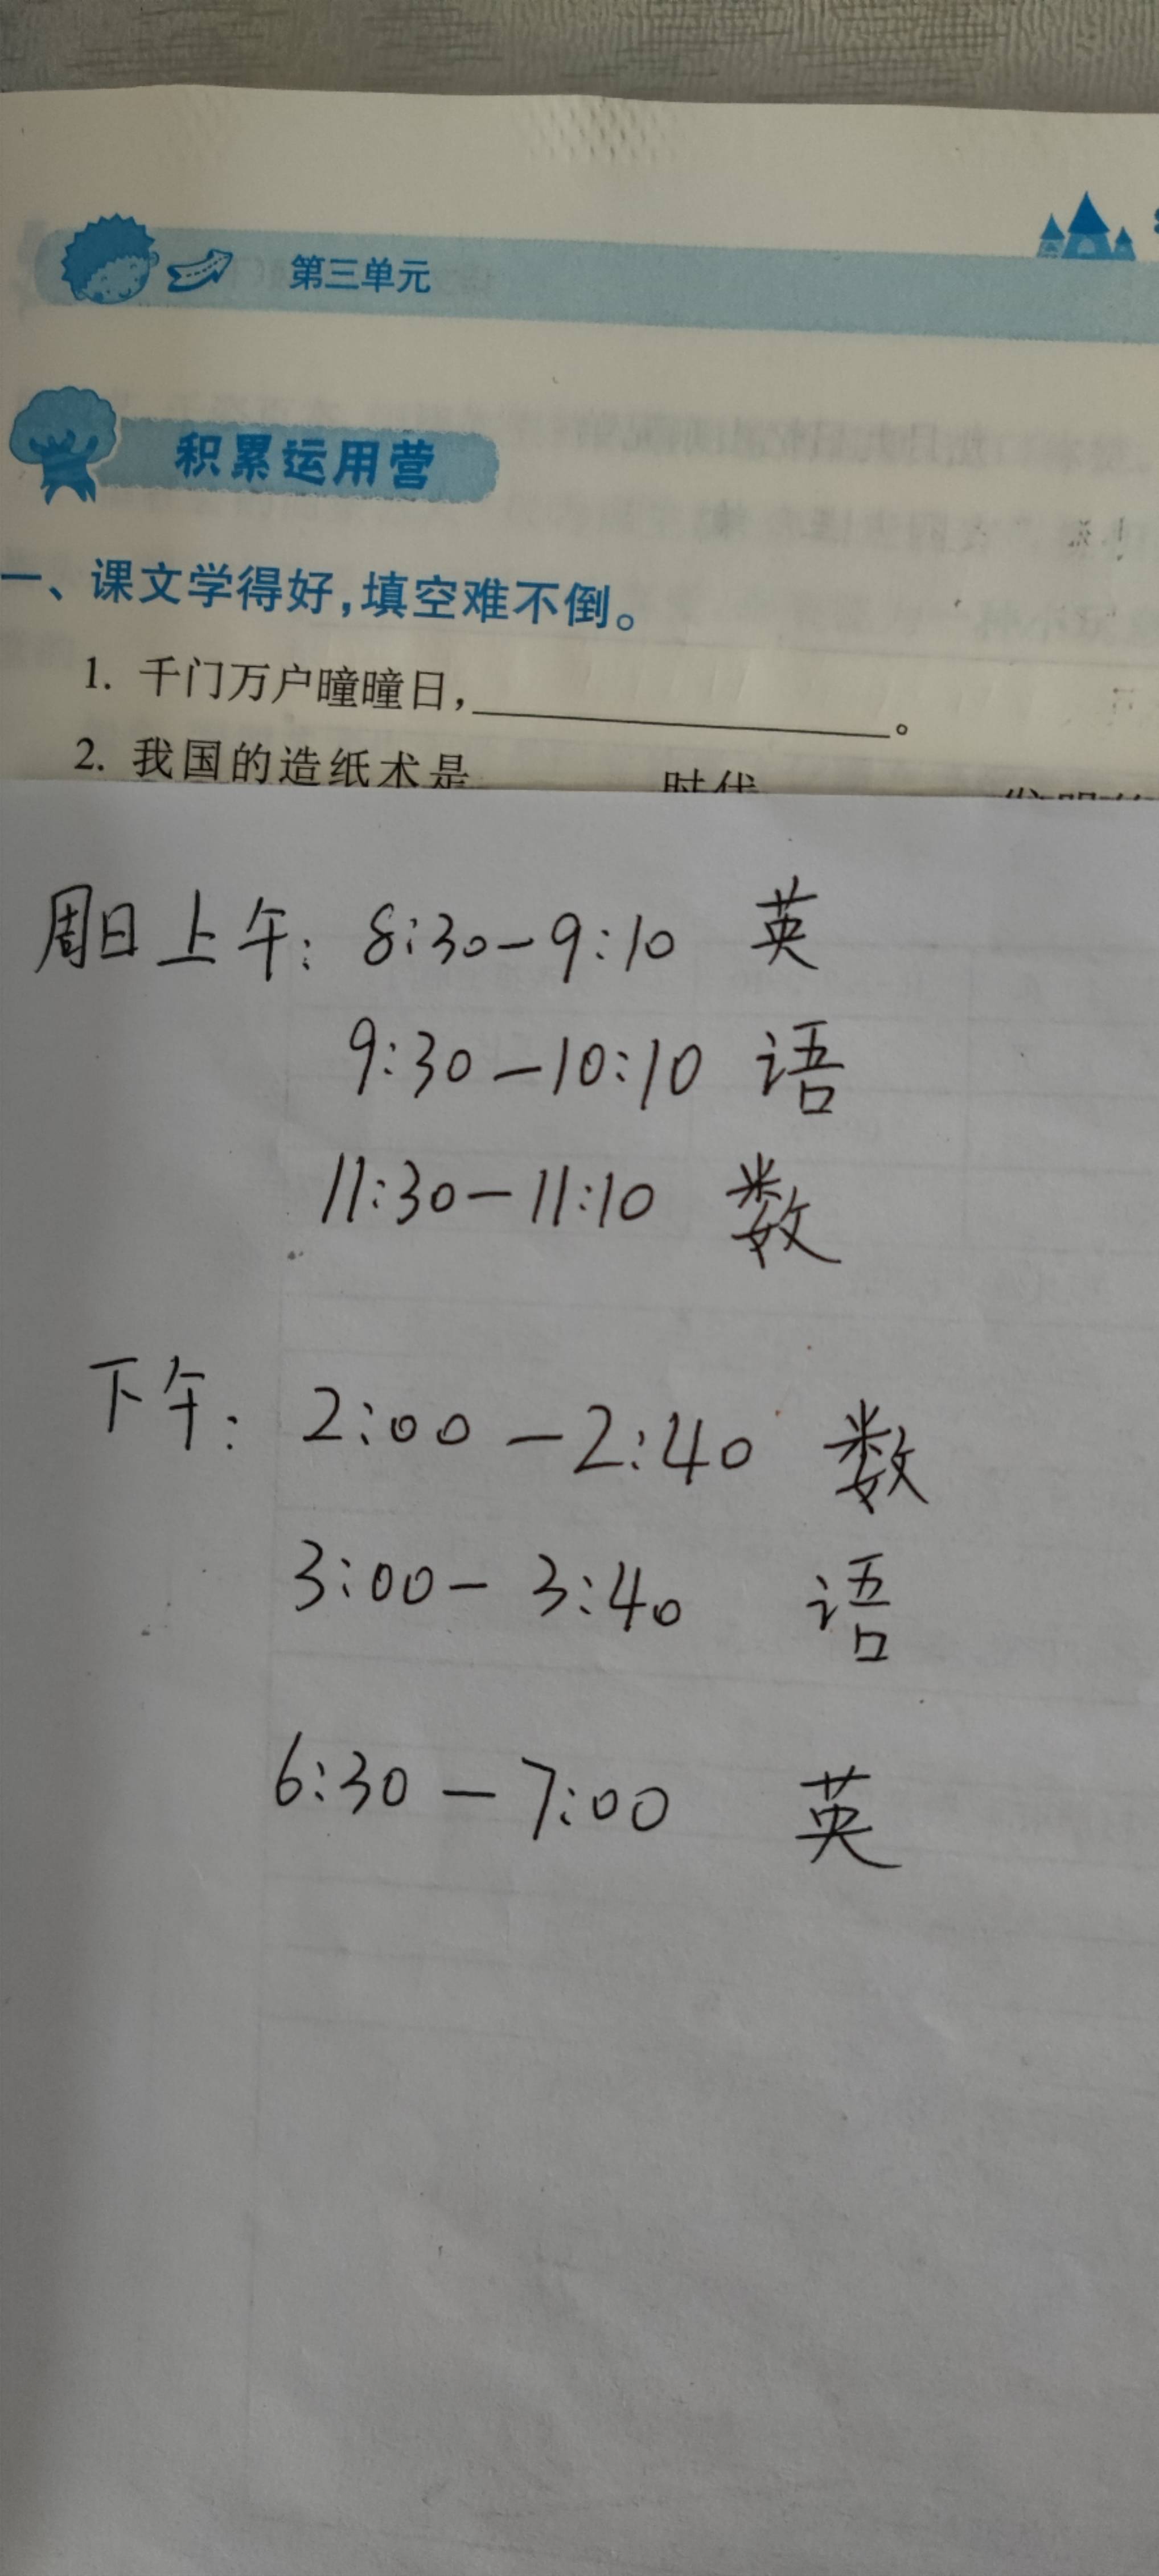 第三单元
积累运用营
一、课文学得好,填空难不倒。
1. 千门万户曈曈日,。
2. 我国的造纸术是 时代
周日上午: 8:30-9:10 英
9:30-10:10 语
11:30-11:10 数
下午: 2:00-2:40 数
3:00-3:40 语
6:30-7:00 英